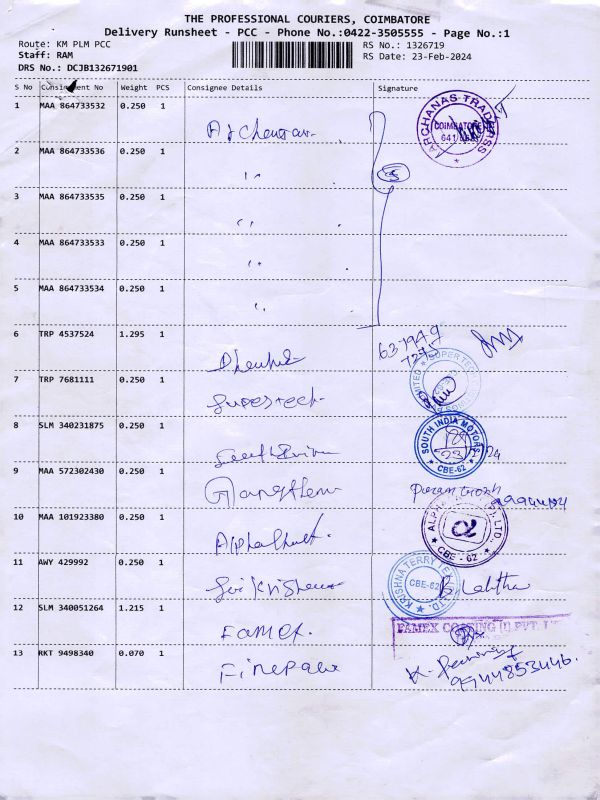 THE PROFESSIONAL COURIERS, COIMBATORE
Delivery Runsheet - PCC - Phone No.:0422-3505555 - Page No.:1
Route: KM PLM PCC RS No.: 1326719
Staff: RAM RS Date: 23-Feb-2024
DRS No.: DCJB132671901
S No Consignment No Weight PCS Consignee Details Signature
1 MAA 864733532 0.250 1
ARCHANAS TRADERSS
COIMBATORE
2 MAA 864733536 0.250 1 "
3 MAA 864733535 0.250 1 "
4 MAA 864733533 0.250 1 "
5 MAA 864733534 0.250 1 "
6 TRP 4537524 1.295 1
7 TRP 7681111 0.250 1 Supertech
8 SLM 340231875 0.250 1
SOUTH INDIA MOTORS
CBE-62
9 MAA 572302430 0.250 1
10 MAA 101923380 0.250 1
CBE - 62
11 AWY 429992 0.250 1 Sri Krishna
KRISHNA TERRY
CBE-62
B. Lalitha
12 SLM 340051264 1.215 1 Famex.
FAMEX COATING (I) PVT. LTD
13 RKT 9498340 0.070 1